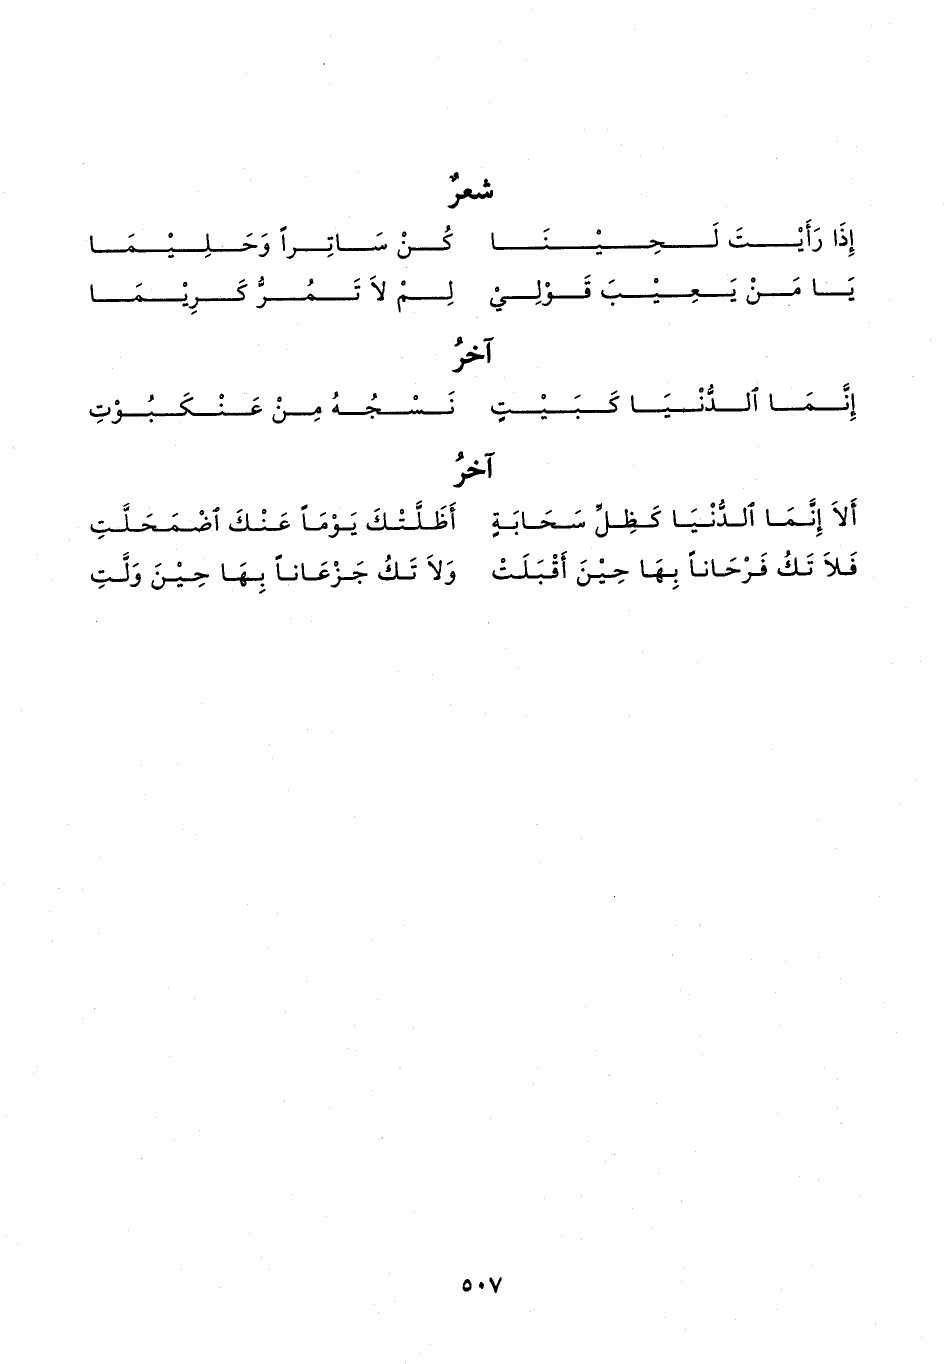 شعرٌ
إِذَا رَأَيْتَ لَحِيْنَا كُنْ سَاتِراً وَحَلِيْمَا
يَا مَنْ يَعِيْبَ قَوْلِيْ لِمْ لاَ تَمُرُّ كَرِيْمَا
آخرُ
إِنَّمَا ٱلدُّنْيَا كَبَيْتٍ نَسْجُهُ مِنْ عَنْكَبُوْتِ
آخرُ
أَلاَ إِنَّمَا ٱلدُّنْيَا كَظِلِّ سَحَابَةٍ أَظَلَّتْكَ يَوْمَاً عَنْكَ ٱضْمَحَلَّتِ
فَلاَ تَكُ فَرْحَاناً بِهَا حِيْنَ أَقْبَلَتْ وَلاَ تَكُ جَزْعَاناً بِهَا حِيْنَ وَلَّتِ
٥٠٧